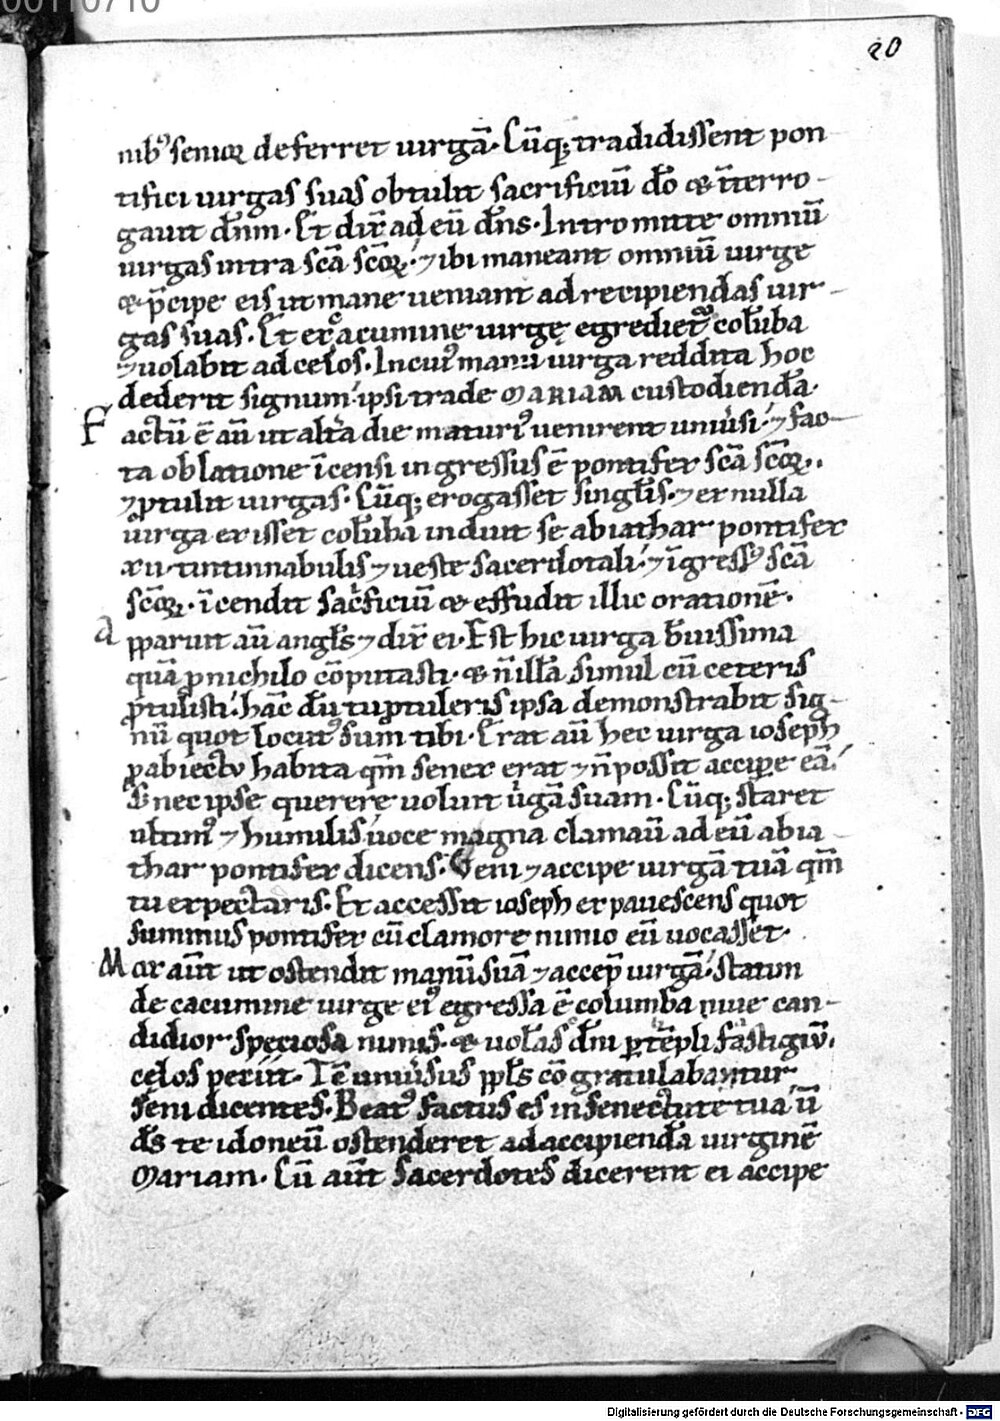 00110710
20
nib᷒ senior deferret uirgā. Cūq; tradidissent pon-
tifici uirgas suas obtulit sacrificiū dō & īterro-
gauit dn̄m. Et dix̄ ad eū dn̄s. Intromitte omniū
uirgas intra scā scōꝝ. ⁊ ibi maneant omniū uirge
& p̄cipe eis ut mane ueniant ad recipiendas uir-
gas suas. Et ex cacumine uirgę egrediet᷒ colūba
⁊ uolabit ad celos. In cui᷒ manu uirga reddita hoc
dederit signum ipsi trade MARIAM custodiendā.
Factū ē aū ut altā die maturi᷒ uenirent uniusi. ⁊ fac-
ta oblatione īcensi ingressus ē pontifex scā scōꝝ.
⁊ ꝓtulit uirgas. Cūq; erogasset singlis. ⁊ ex nulla
uirga exisset colūba induit se abiathar pontifex
xii tintinnabulis ⁊ ueste sacerdotali. ⁊ īgress᷒ scā
scōꝝ. īcendit sacficiū & effudit illic orationē.
Apparuit aū angls ⁊ dix̄ ei. Est hic uirga b̄uissima
quā ꝓ nichilo cōputasti. & n̄ illā simul cū ceteris
ꝓtulisti. hāc dū tu ꝓtuleris ipsa demonstrabit sig-
nū quot locut᷒ sum tibi. Erat aū hec uirga ioseph
ꝓ abiecto habita qm̄ senex erat ⁊ n̄ possit accipe eā.
S nec ipse querere uoluit uigā suam. Cūq; staret
ultim᷒ ⁊ humilis uoce magna clamau̅ ad eū abia-
thar pontifex dicens. Veni ⁊ accipe uirgā tuā qm̄
tu expectaris. Et accessit ioseph expauescens quot
summus pontifex cū clamore nimio eū uocasset.
Mox aūt ut ostendit manū suā ⁊ accep̄ uirgā. statim
de cacumine uirge ei᷒ egressa ē columba niue can-
didior speciosa nimis. & uolās diu ꝑ tēpli fastigiū.
cęlos petiit. Tē uniusus ppls cōgratulabantur
seni dicentes. Beat᷒ factus es in senectute tua ū
ds te idoneū ostenderet ad accipiendā uirginē
Mariam. Cū aūt sacerdotes dicerent ei accipe
Digitalisierung gefördert durch die Deutsche Forschungsgemeinschaft - DFG